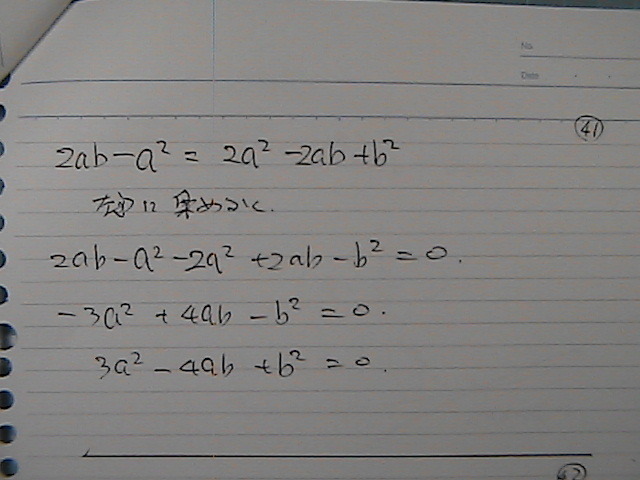 No.
Date
41
2ab-a² = 2a² -2ab+b²
左辺に集めると.
2ab-a²-2a² +2ab-b² = 0.
-3a² + 4ab - b² = 0.
3a² - 4ab + b² = 0.